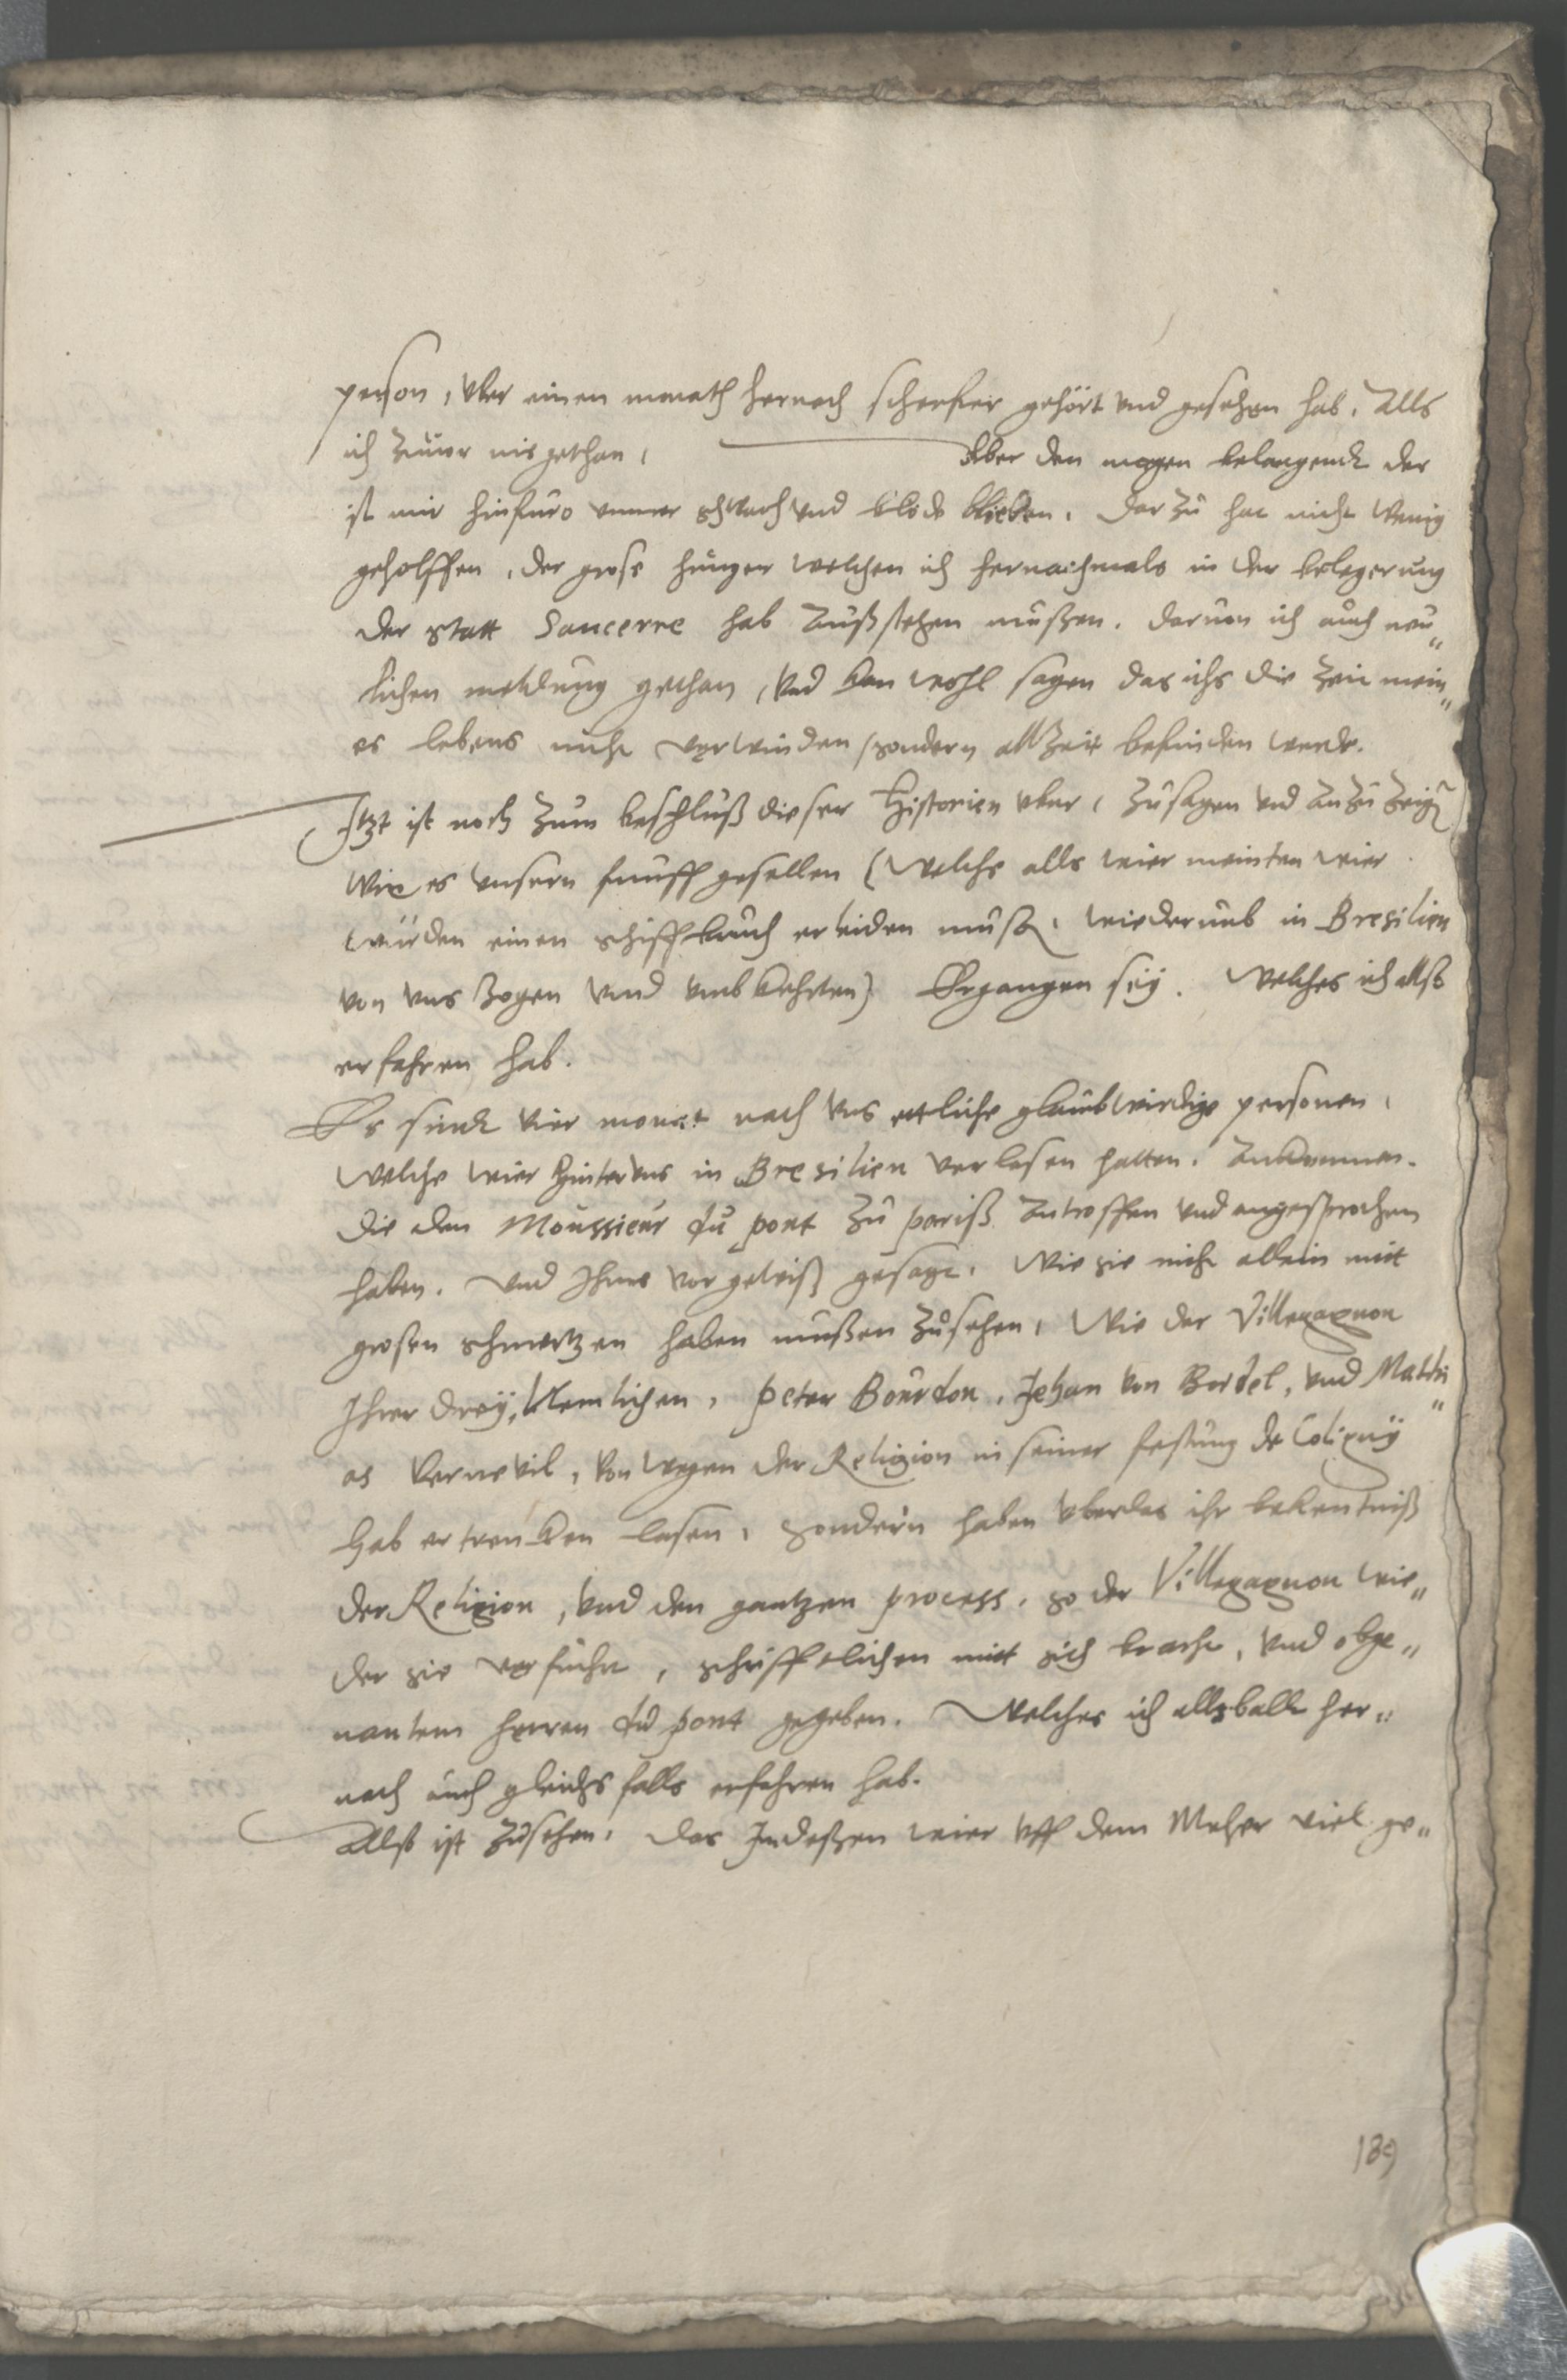 person, vber einen monath hernach scherfer gehört vnd gesehen hab, Alls
ich zuuor nie gethan, Aber den magen belangendt der
ist mir hinfuro immer schwach vnd blöde blieben. Dar zu hat nicht wenig
geholffen, der grose hunger welchen ich hernachmals in der belegerung
der statt Sancerre hab Außstehen mußen. Daruon ich auch neu„
lichen meldung gethan, vnd kan wohl sagen das ichs die Zeit mein„
es lebens nicht verwinden, sondern allzeit befinden werde.
Itzt ist noch zum beschluß dieser Historien vber, zu sagen vnd anzu zeigen
Wie es vnsern funff gesellen (welche alls wier meinten wier
würden einen schiffbruch erleiden mußen, wiederumb in Bresilien
von vns zogen vnd vmb kehrten) Ergangen seÿ. Welches ich allso
erfahren hab.
Es sindt vier monat nach vns ettliche glaubwirdige personen,
welche wier hinter vns in Bresilien verlasen hatten. Ankommen.
die den Moussieur du pont zu pariß Antroffen vnd angesprochen
haben. vnd Ihme vor gewiß gesagt, Wie sie nicht allein mitt
grosen schmertzen haben mußen zusehen, Wie der Villegagnon
Ihrer dreÿ, Nemlichen, peter Bourdon, Jehan von Bordel, vnd Matthi„
as Vernevil, von wegen der Religion in seiner festung de Colignÿ
hab ertrencken lasen, sondern haben vber das ihr bekentniß
der Religion, vnd den gantzen process, so der Villegagnon wie„
der sie verfuhrt, schrifftlichen mitt sich bracht, vnd obge„
nantem herren du pont gegeben. Welches ich allsbalt her„
nach auch gleichs falls erfahren hab.
Allso ist zusehen, das Indeßen wier vff dem Meher viel ge„
189